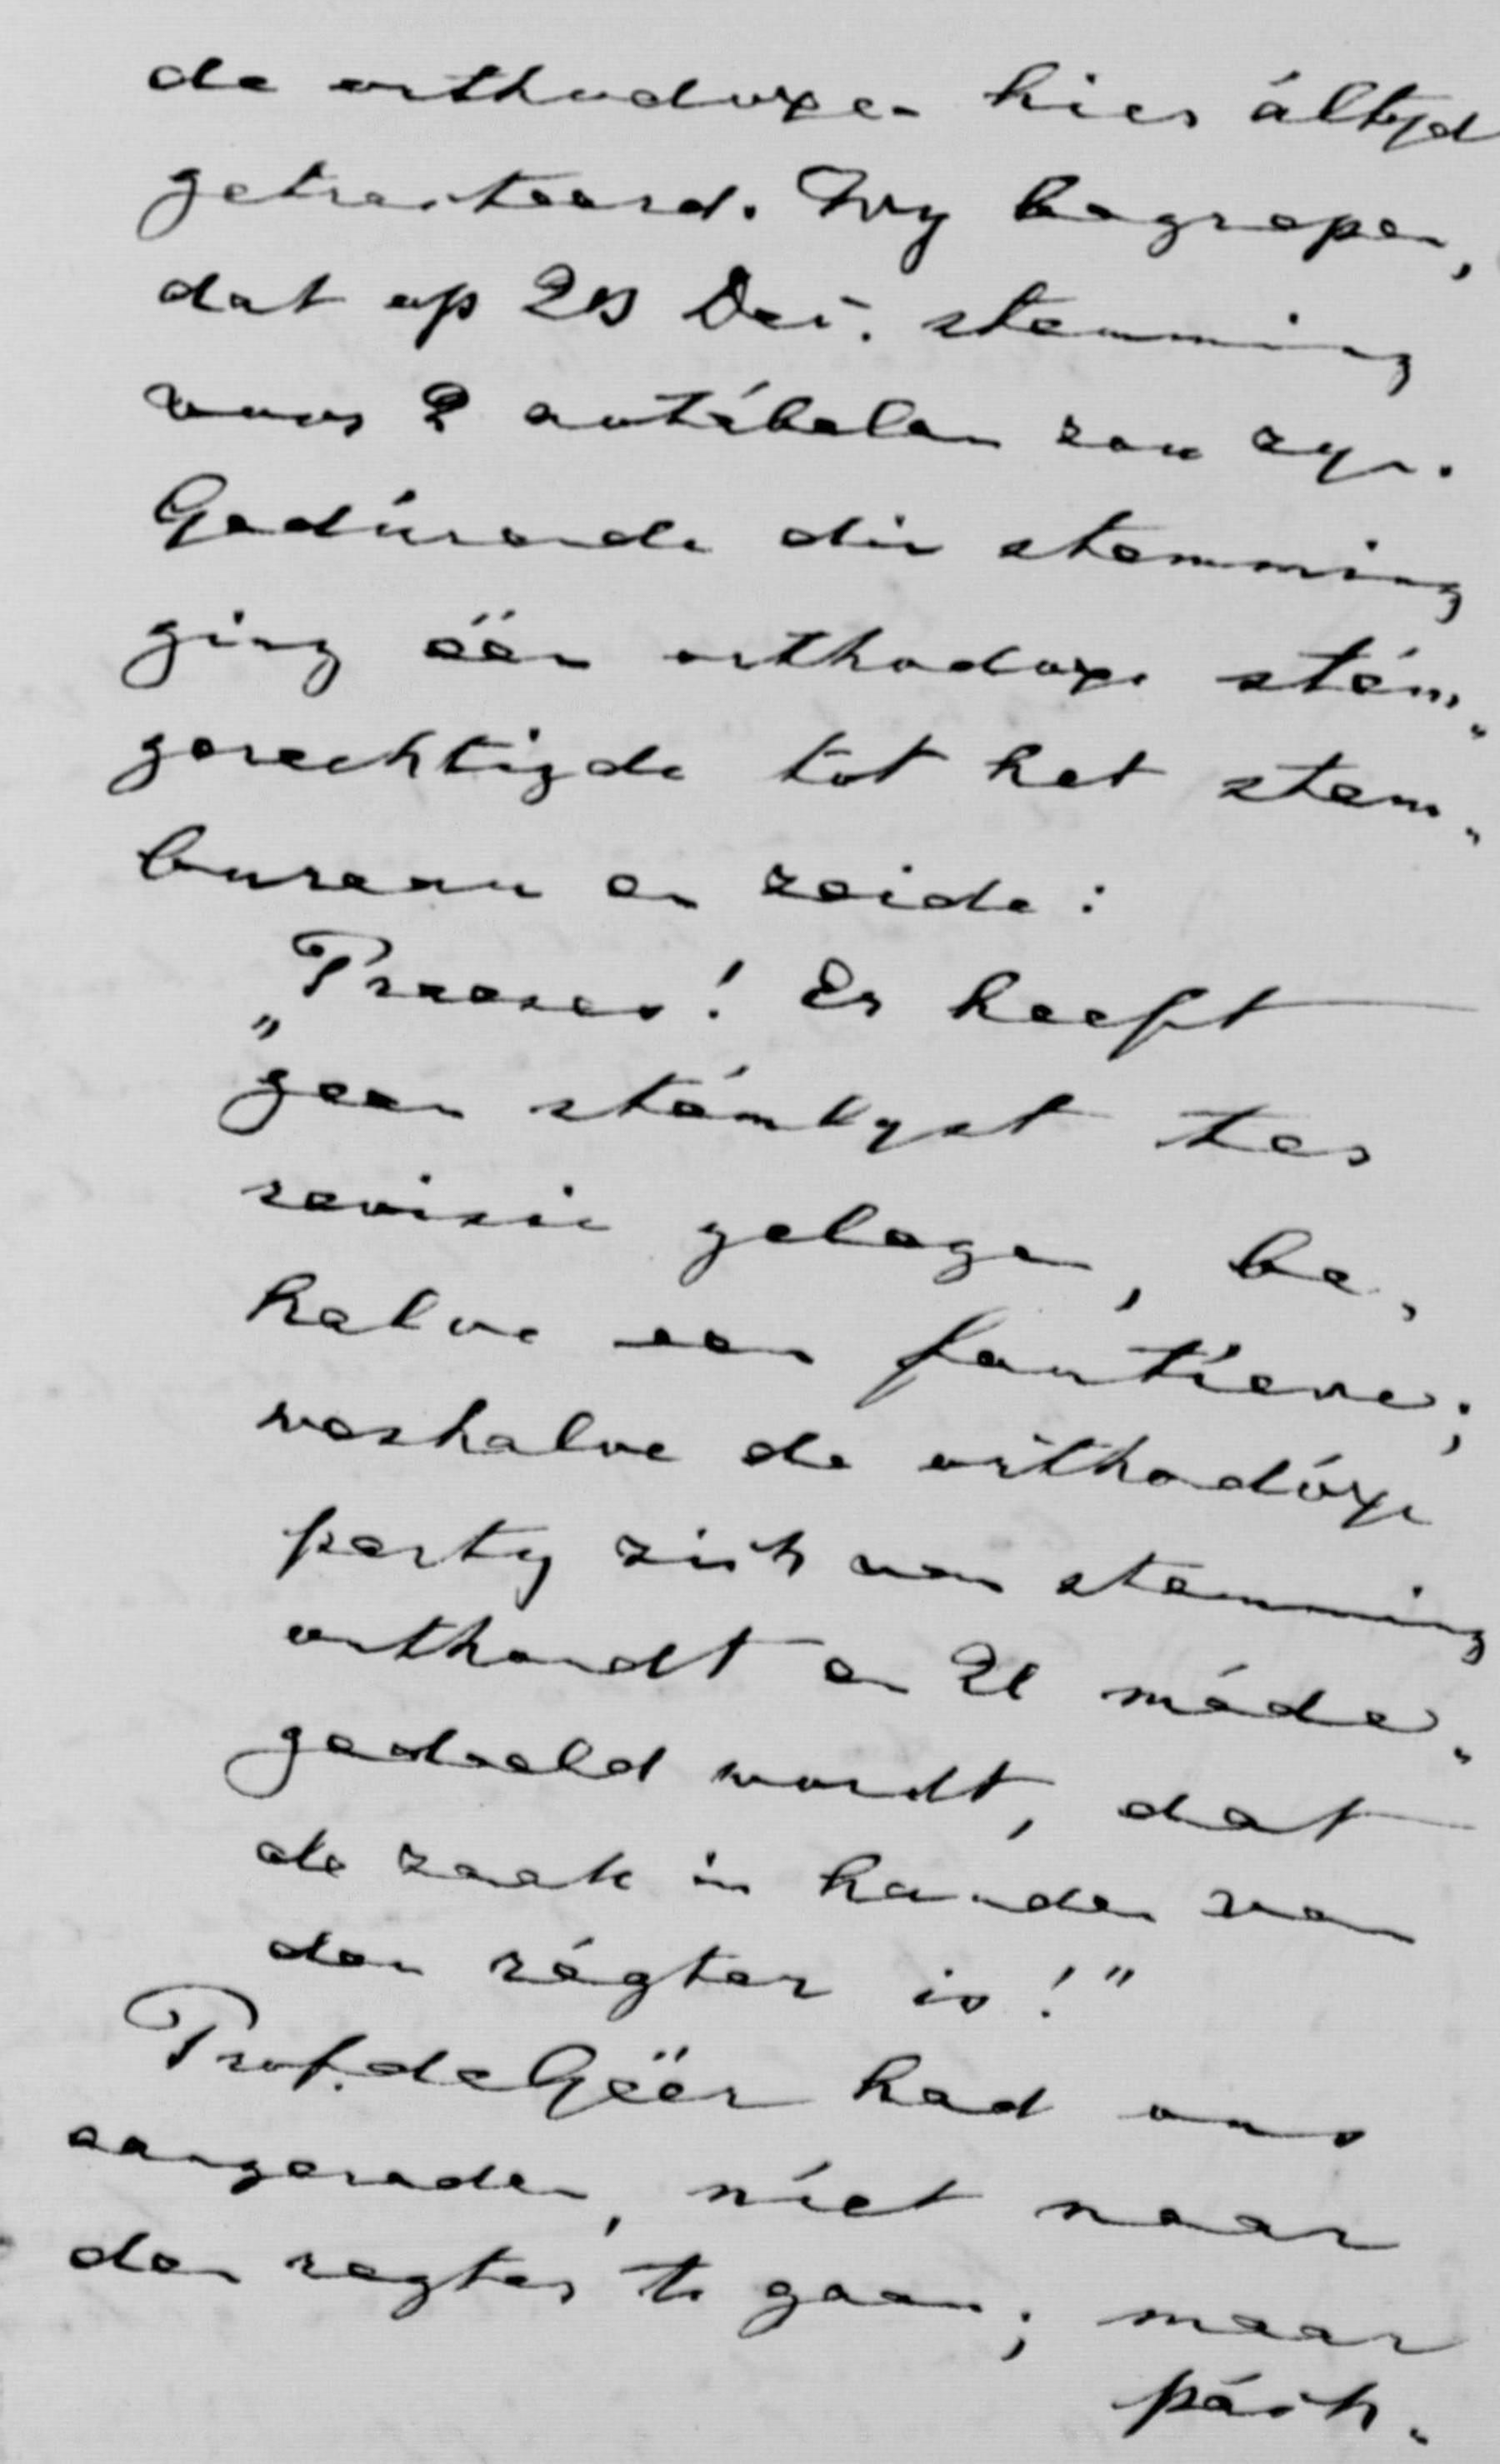 de orthodoxen hier áltyd
getracteerd. Wy begrepen,
dat op 28 Dec. stemming
voor 2 notábelen zou zyn.
Gedúrende die stemming
ging één orthodoxe stém„
gerechtigde tot het stem„
bureau en zeide:
„Praeses! Er heeft
geen stémlyst ter
revisie gelegen, be„
halve een foutíeve;
weshalve de orthodóxe
party zich van stemming
onthoudt en U méde„
gedeeld wordt, dat
de zaak in handen van
den régter is!"
Prof. de Géér had ons
aangeraden, níet naar
den regter te gaan; maar